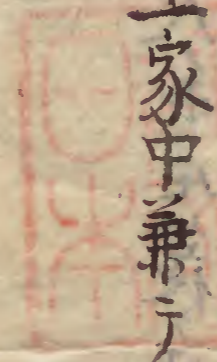 一家中兼テ